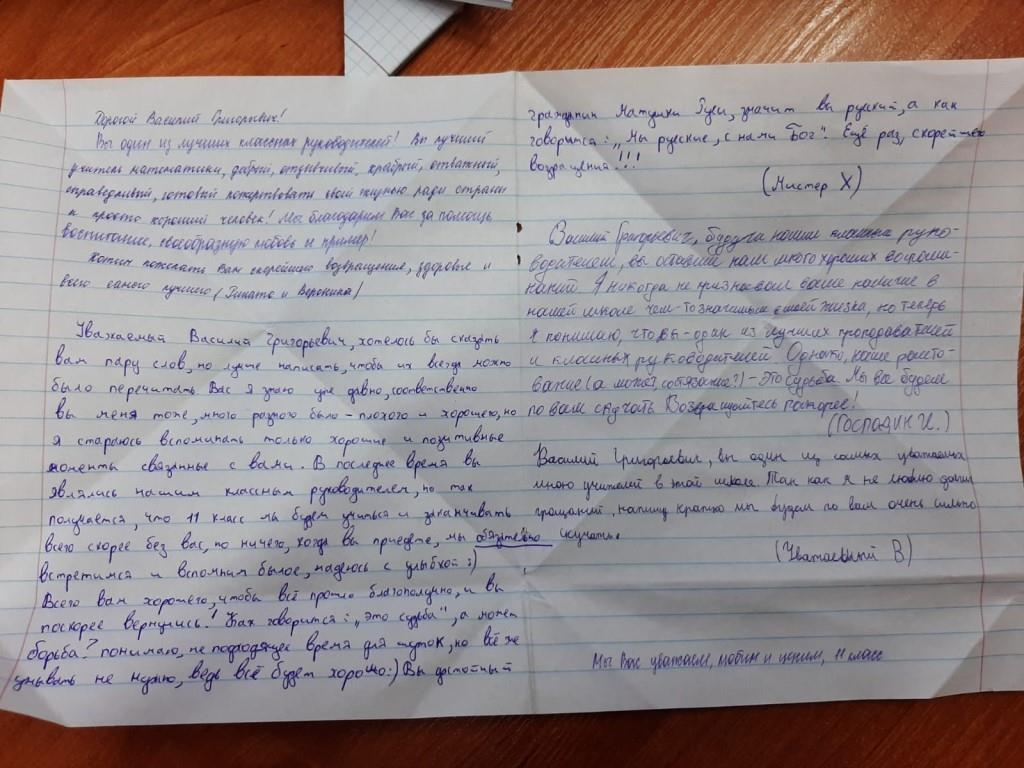 Дорогой Василий Григорьевич!
Вы один из лучших классных руководителей! Вы лучший
учитель математики, добрый, отзывчивый, храбрый, отважный,
справедливый, готовый пожертвовать своей жизнью ради страны
и просто хороший человек! Мы благодарим Вас за помощь
воспитание, своеобразную любовь и пример!
Хотим пожелать Вам скорейшего возвращения, здоровья и
всего самого лучшего (Рината и Вероника)
Уважаемый Василий Григорьевич, хотелось бы сказать
вам пару слов, но лучше написать, чтобы их всегда можно
было перечитать. Вас я знаю уже давно, соответственно
вы меня тоже, много разного было - плохого и хорошего, но
я стараюсь вспоминать только хорошие и позитивные
моменты связанные с вами. В последнее время вы
являлись нашим классным руководителем, но так
получается, что 11 класс мы будем учиться и заканчивать
всего скорее без вас, но ничего, когда вы приедете, мы обязательно
встретимся и вспомним былое, надеюсь с улыбкой :)
Всего вам хорошего, чтобы всё прошло благополучно, и вы
поскорее вернулись! Как говорится: „это судьба“, а может
борьба? понимаю, не подходящее время для шуток, но всё же
унывать не нужно, ведь всё будет хорошо:) Вы достойный
гражданин Матушки Руси, значит вы русский, а как
говорится: „Мы русские, с нами Бог“. Ещё раз, скорейшего
возвращения!!!
(Мистер X)
Василий Григорьевич, будучи нашим классным руко-
водителем, вы оставили нам много хороших воспоми-
наний. Я никогда не признавал ваше наличие в
нашей школе чем-то значимым в моей жизни, но теперь
я понимаю, что вы - один из лучших преподавателей
и классных руководителей. Однако, наше расто-
вание (а может, состязание?) - это судьба. Мы все будем
по вам скучать. Возвращайтесь поскорее!
(Господин И.)
Василий Григорьевич, вы один из самых уважаемых
мною учителей в этой школе. Так как я не люблю долгих
прощаний, напишу кратко мы будем по вам очень сильно
скучать.
(Уватаевитый В)
Мы Вас уважаем, любим и ценим, 11 класс